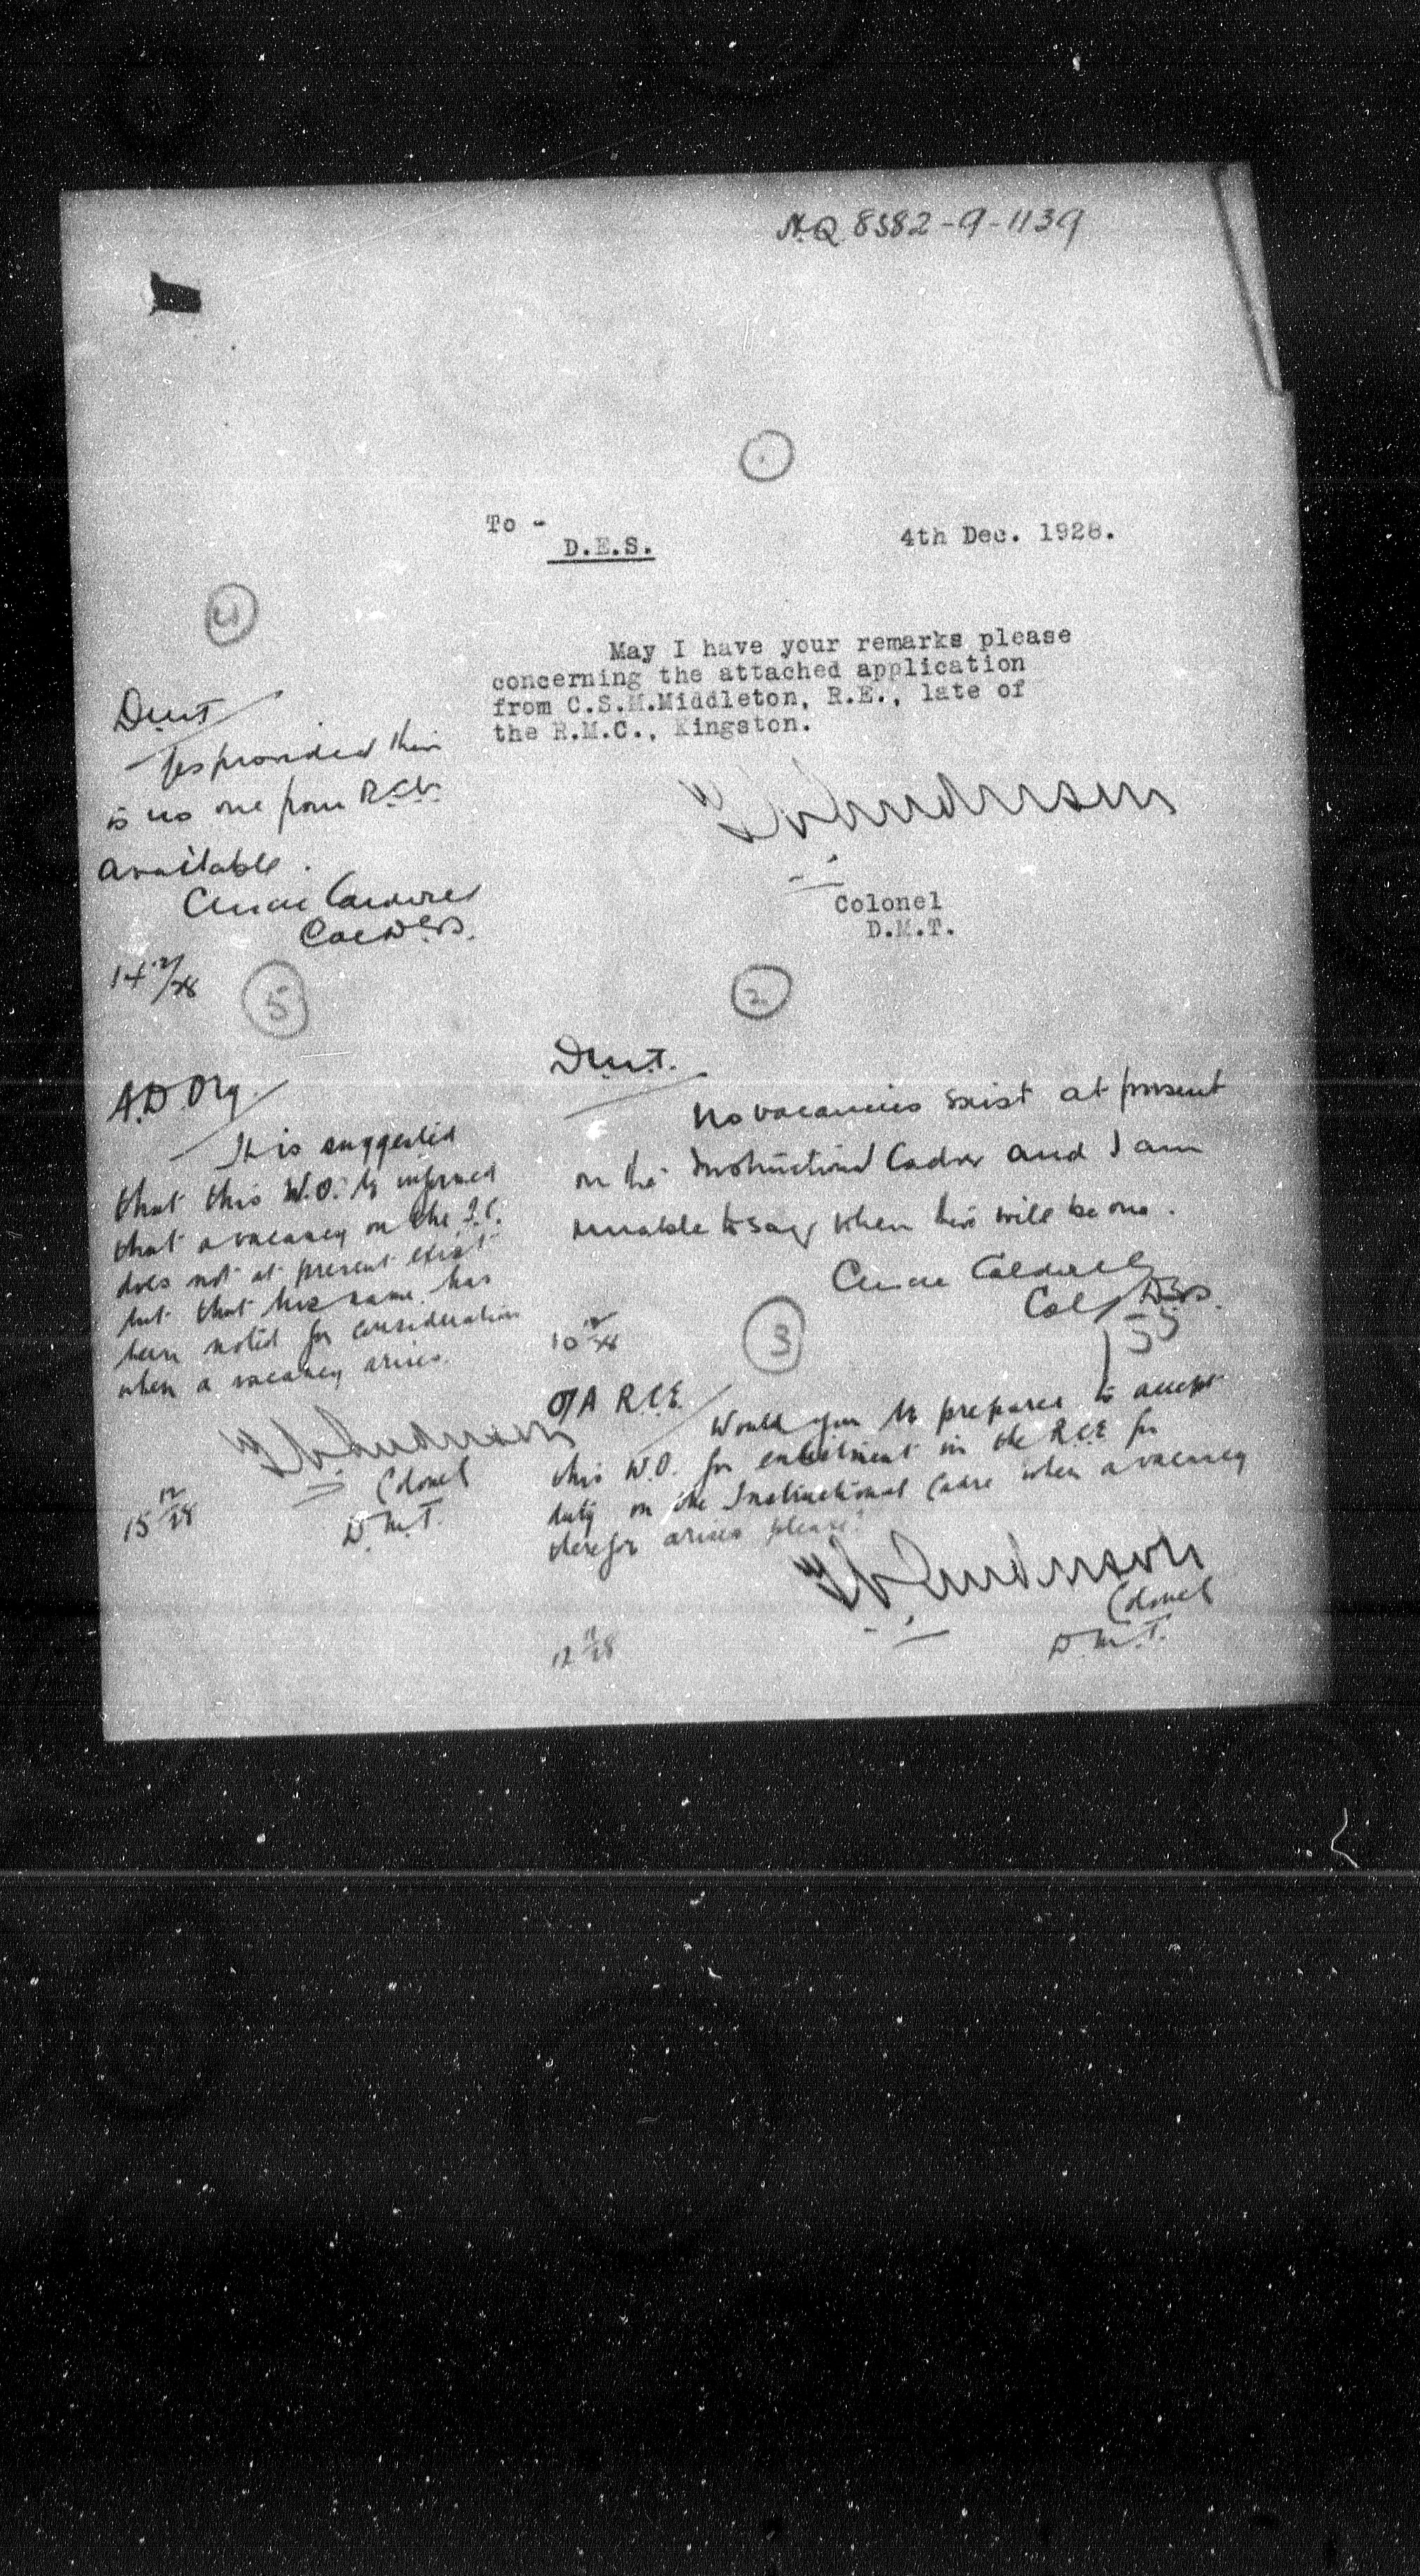 H.Q. 8582-9-1139
To -
D.E.S.
4th Dec. 1928.
May I have your remarks please
concerning the attached application
from C.S.M.Middleton, R.E., late of
the R.M.C., Kingston.
Colonel
D.M.T.
2
D.M.T.
No vacancies exist at present
on the Instructional Cadre and I am
unable to say when there will be one.
Caldwell
Col DES.
10 12/28
3
O/A R.C.E.
Would you be prepared to accept
this W.O. for enlistment in the R.C.E. for
duty on the Instructional Cadre when a vacancy
therefor arises please?
Colonel
D.M.T.
12 12/28
4
D.M.T.
Yes provided there
is no one from R.C.E.
available.
Caldwell
Col DES.
14 12/28
5
A.D. Org.
It is suggested
that this W.O. be informed
that a vacancy on the I.C.
does not at present exist
but that his name has
been noted for consideration
when a vacancy arises.
Colonel
D.M.T.
15 12/28